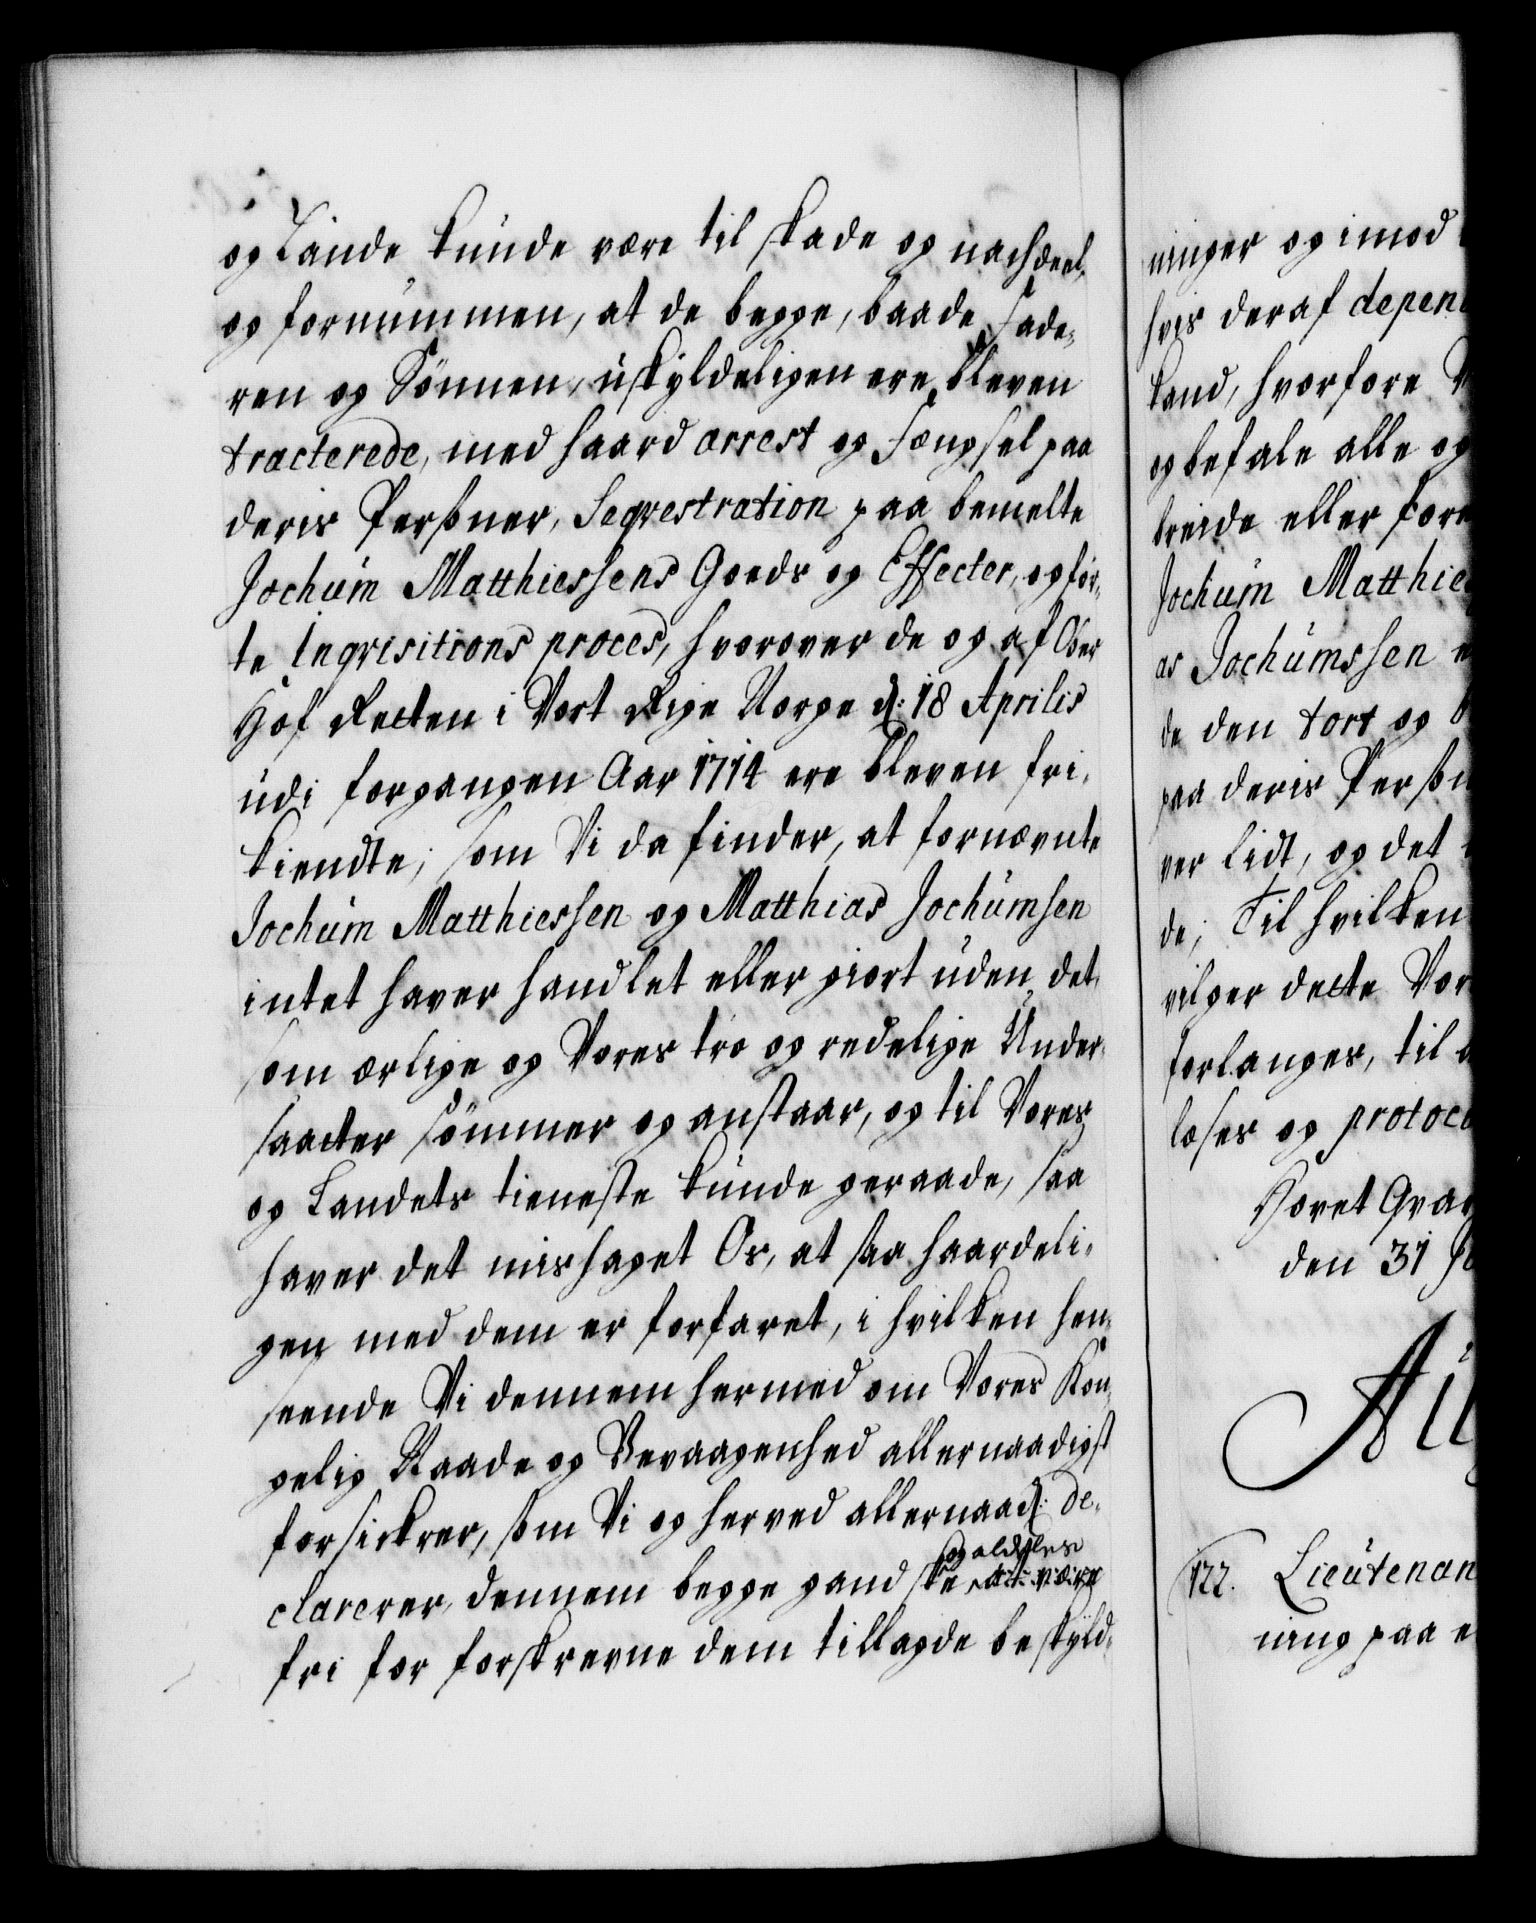 og Lande kunde være til skade og nachdeel,
og fornummen, at de begge, baade Fade¬
ren og Sönnen, uskyldeligen ere bleven
tracterede, med haard arrest og Fængsel paa
deris Perßoner, Seqvestration paa bemelte
Jochum Matthiessens Goeds og Effecter, og för¬
te Inqvisitions proces, hvorover de og af Ober
Hof Retten i Vort Rige Norge d: 18 Aprilis
udi forgangen Aar 1714 ere bleven fri¬
kiendte; som Vi da finder, at fornævnte
Jochum Matthiessen og Matthias Jochumsen
intet haver handlet eller giort uden det,
som ærlige og Vores tro og redelige Under¬
saatter sömmer og anstaar, og til Vores
og Landets tieneste kunde geraade, saa
haver det mishaget Os, at saa haardeli¬
gen med dem er forfaret, i hvilken hen¬
seende Vi dennem hermed om Vores Kon¬
gelig Naade og Bevaagenhed allernaadigst
forsickrer, som Vi og herved allernaad: de¬
og aldeeles
clarerer, dennem begge gandske at være
fri for forskrevne dem tillagde beskyld¬
ninger og imod
hvis deraf depen
kand, hvorfore V
og befale alle og
breide eller fore
Jochum Matthie
as Jochumssen e
de den tort og
paa deris Perßon
ver lidt, og det
de; Til hvilken
vilger dette Vor
forlanges, til
læses og protoco
Hovet Qvar
den 31
122. Lieutenan
ning paa e